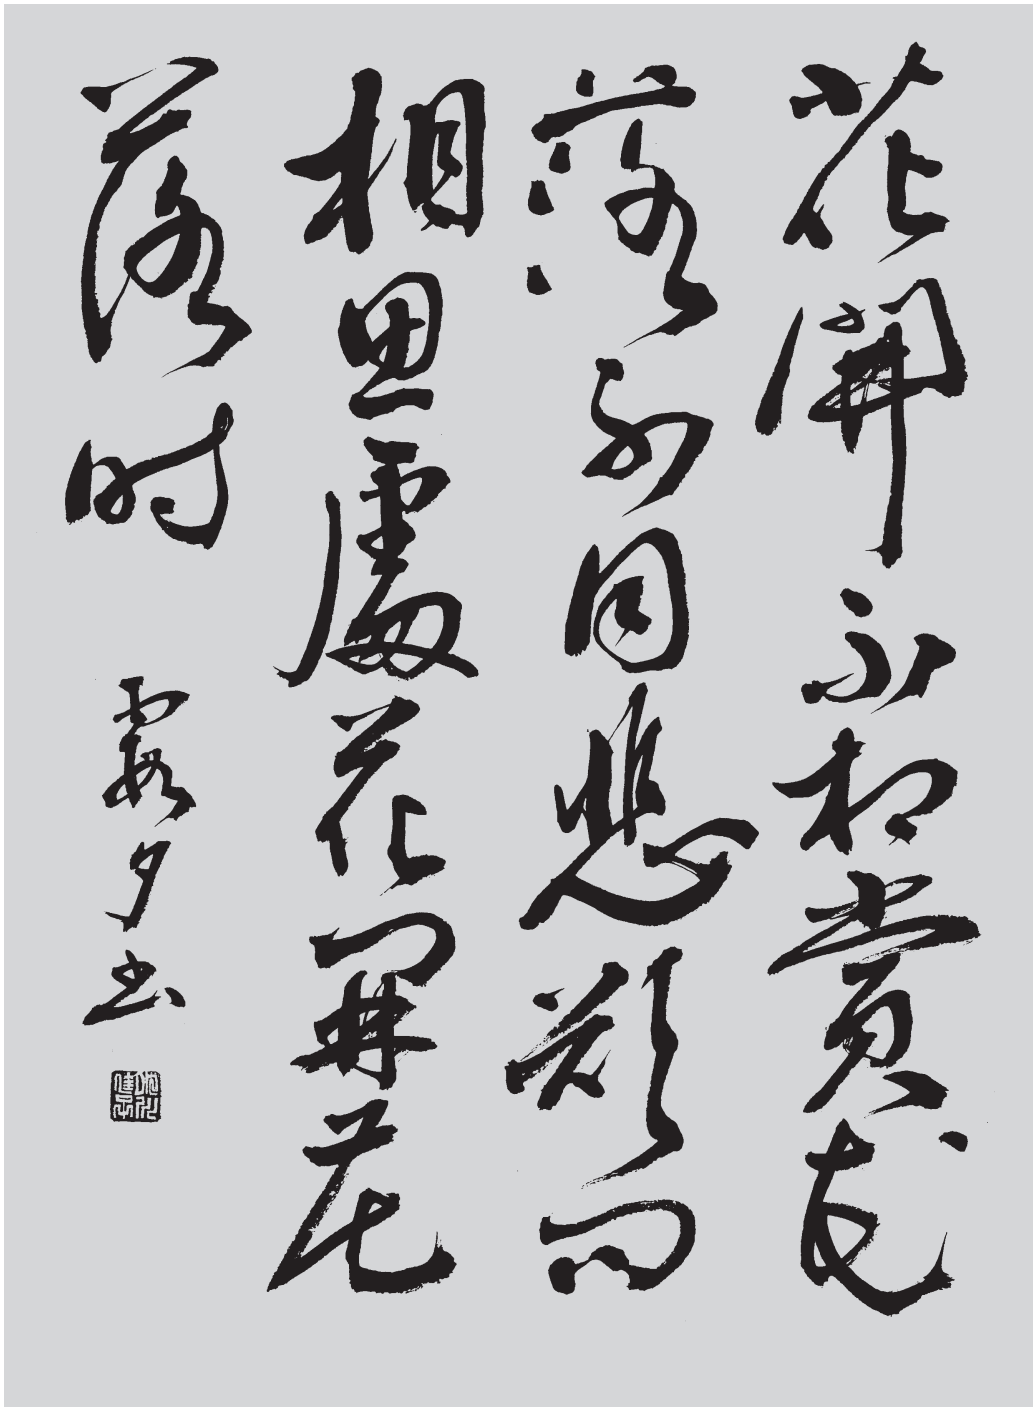 花開不相賞花
落不同悲欲問
相思處花開花
落時
霞夕書